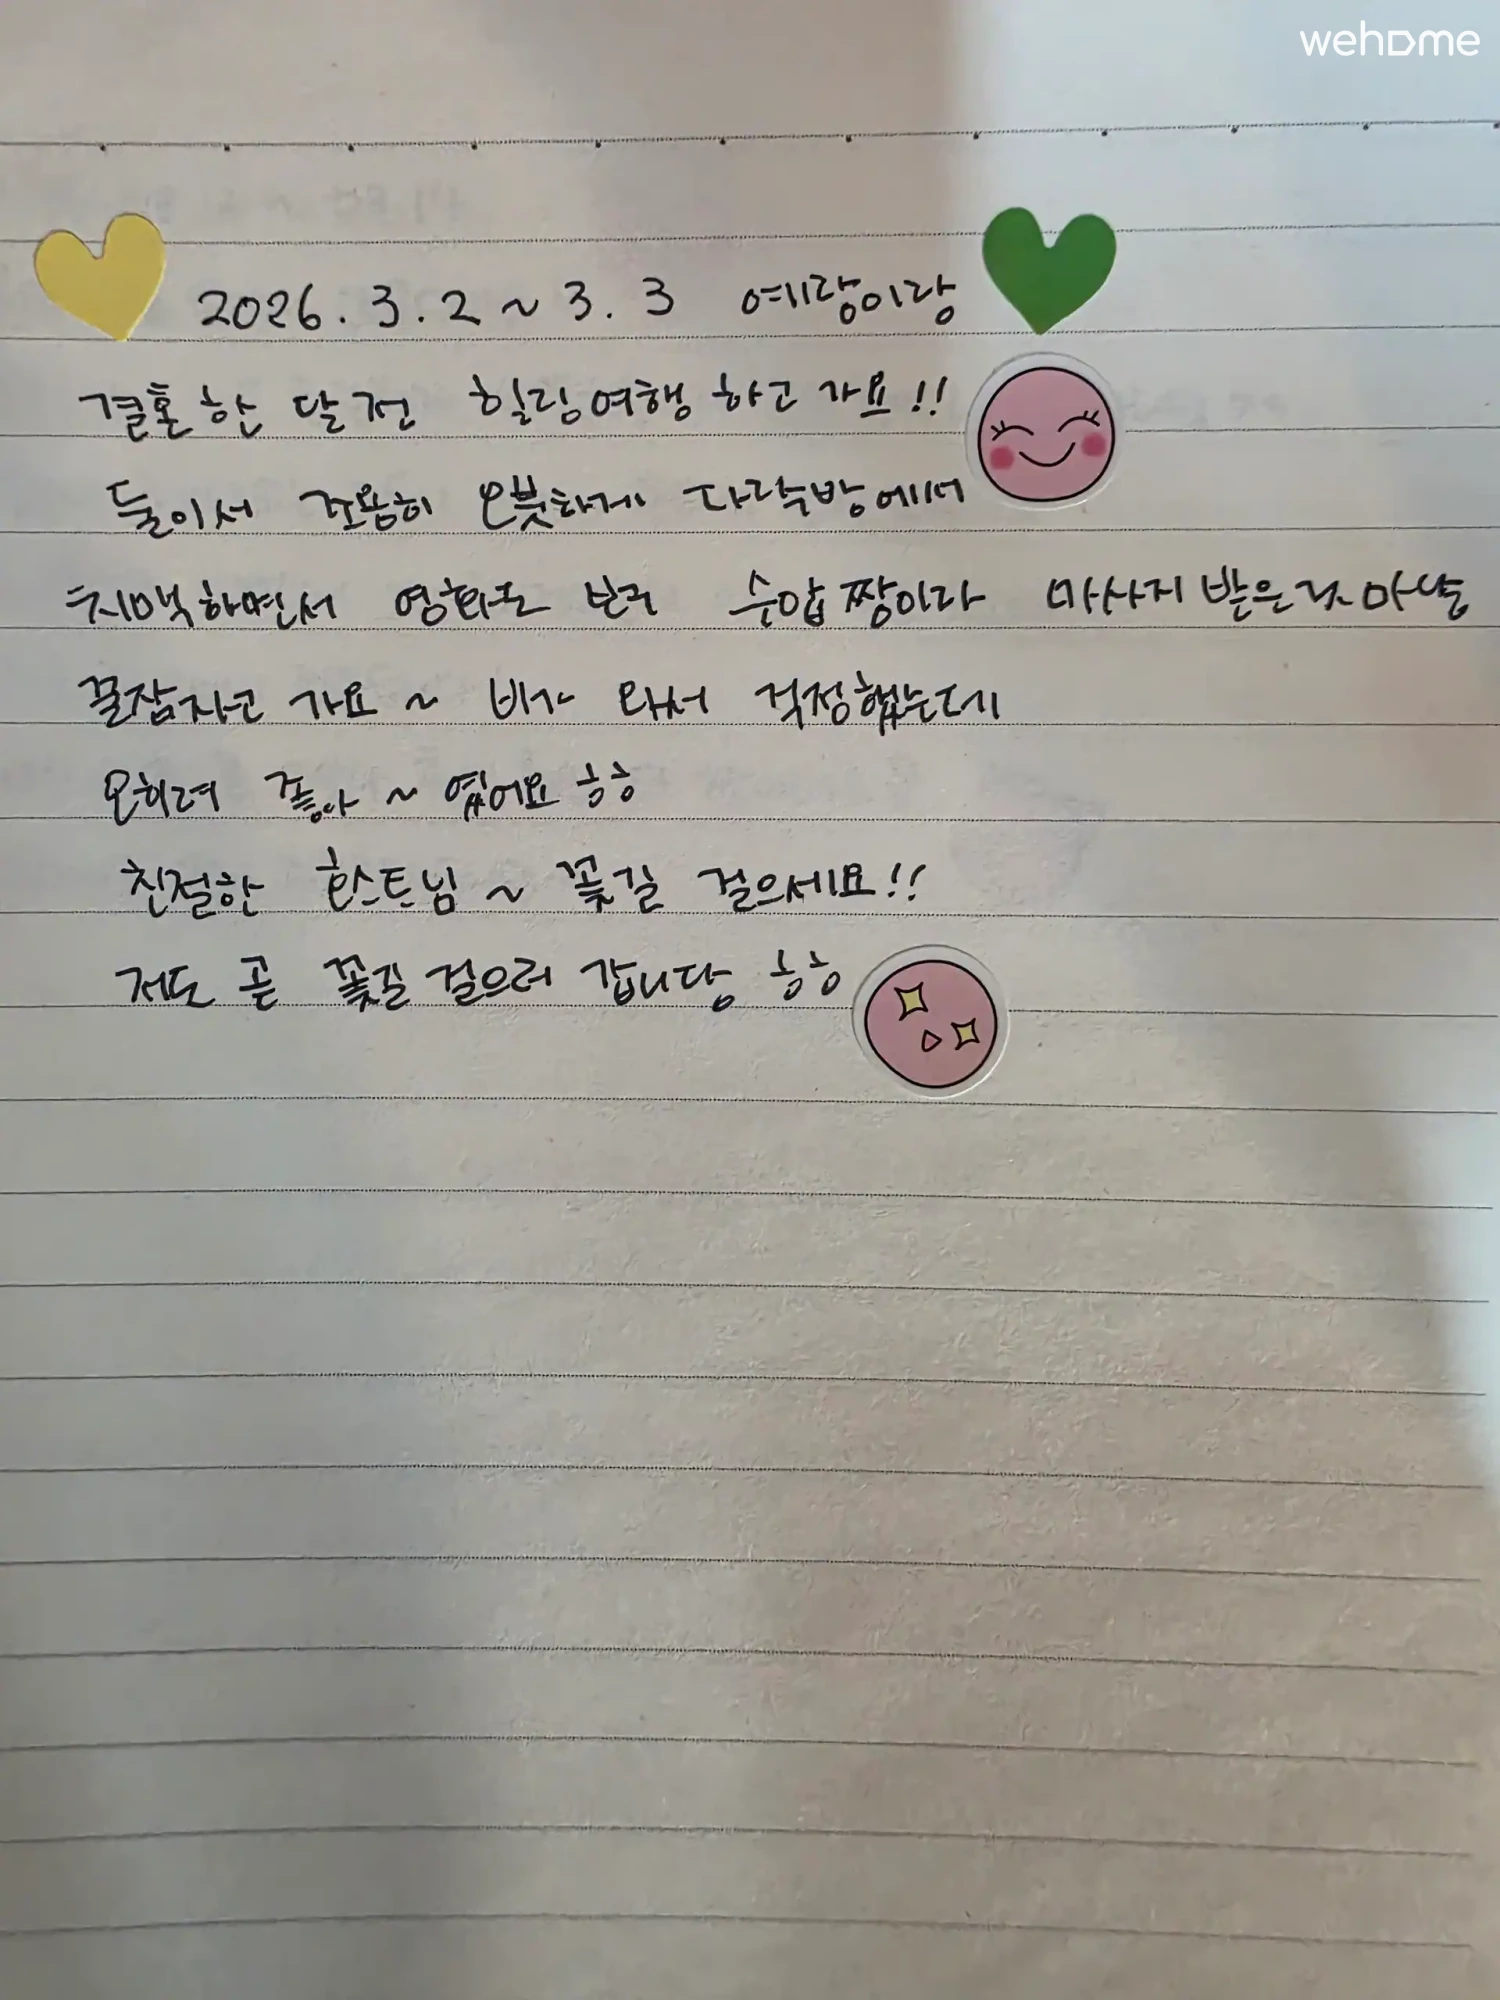 wehome
2026. 3. 2 ~ 3. 3 예랑이랑
결혼 한 달 전 힐링여행 하고 가요!!
둘이서 조용히 오붓하게 다락방에서
치맥하면서 영화도 보고 수압 짱이라 마사지 받은
꿀잠자고 가요 ~ 비가 와서 걱정했는데
오히려 좋아 ~ 였어요 ㅎㅎ
친절한 호스트님 ~ 꽃길 걸으세요!!
저도 곧 꽃길 걸으러 갑니당 ㅎㅎ